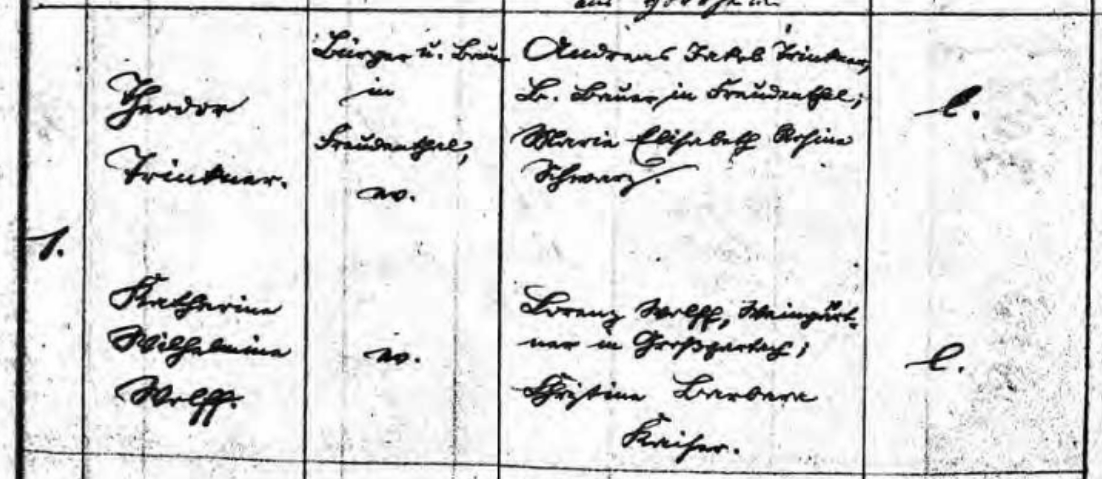 aus
1.
Theodor
Trinkner.
Bürger u. Bauer
in
Freudenthal,
ev.
Andreas Jakob Trinkner,
B. Bauer in Freudenthal;
Marie Elisabeth Rosine
Schwarz.
l.
Katharine
Wilhelmine
Wolff.
ev.
Lorenz Wolff, Weingärt-
ner in Großgartach;
Christine Barbara
Kaiser.
l.